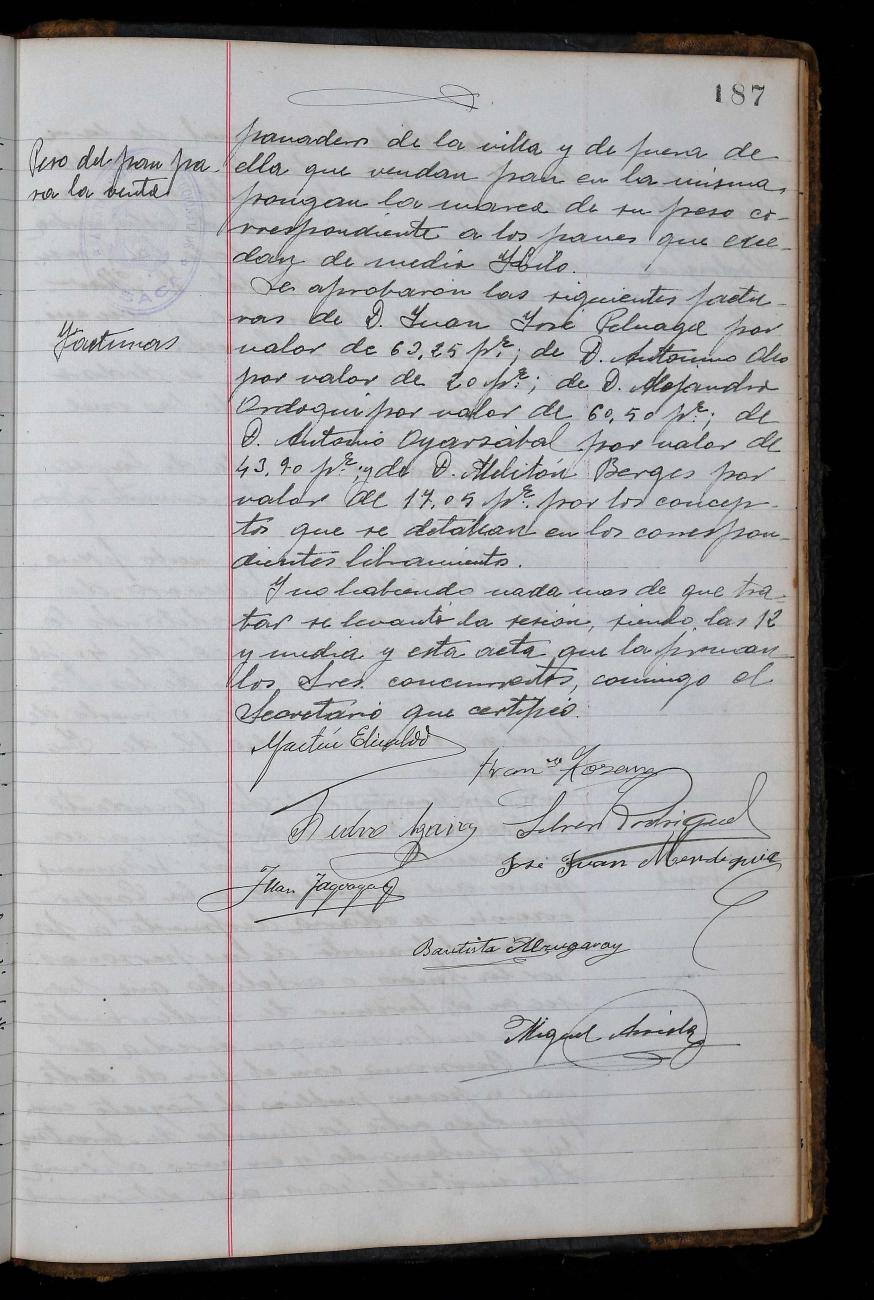 187
Peso del pan pa-
ra la venta
panaderos de la villa y de fuera de
ella que vendan pan en la misma,
pongan la marca de su peso co-
rrespondiente a los panes que exce-
dan de medio Kilo.
Facturas
Se aprobaron las siguientes factu-
ras de D. Juan José por
valor de 63,25 pts; de D. Antonino
por valor de 20 pts; de D. Alejandro
Ordoqui por valor de 60,50 pts; de
D. Antonio Oyarzábal por valor de
43,90 pts; y de D. Melitón Berges por
valor de 17,05 pts. por los concep-
tos que se detallan en los correspon-
dientes libramientos.
Y no habiendo nada mas de que tra-
tar se levantó la sesión, siendo las 12
y media y esta acta que la firman
los Sres. concurrentes, conmigo el
Secretario que certifico.
Martín Elizalde
Franco
Pedro
Silverio Rodriguez
Juan
José Juan Mendeguia
Bautista Alzugaray
Miguel Arrieta